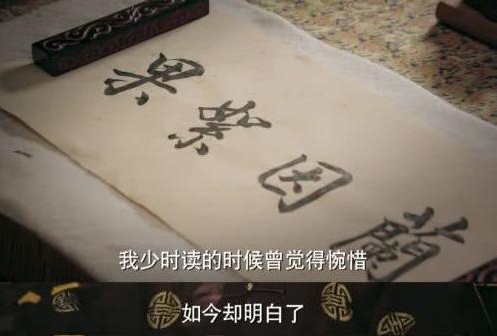 蘭因絮果
我少时读的时候曾觉得惋惜
如今却明白了